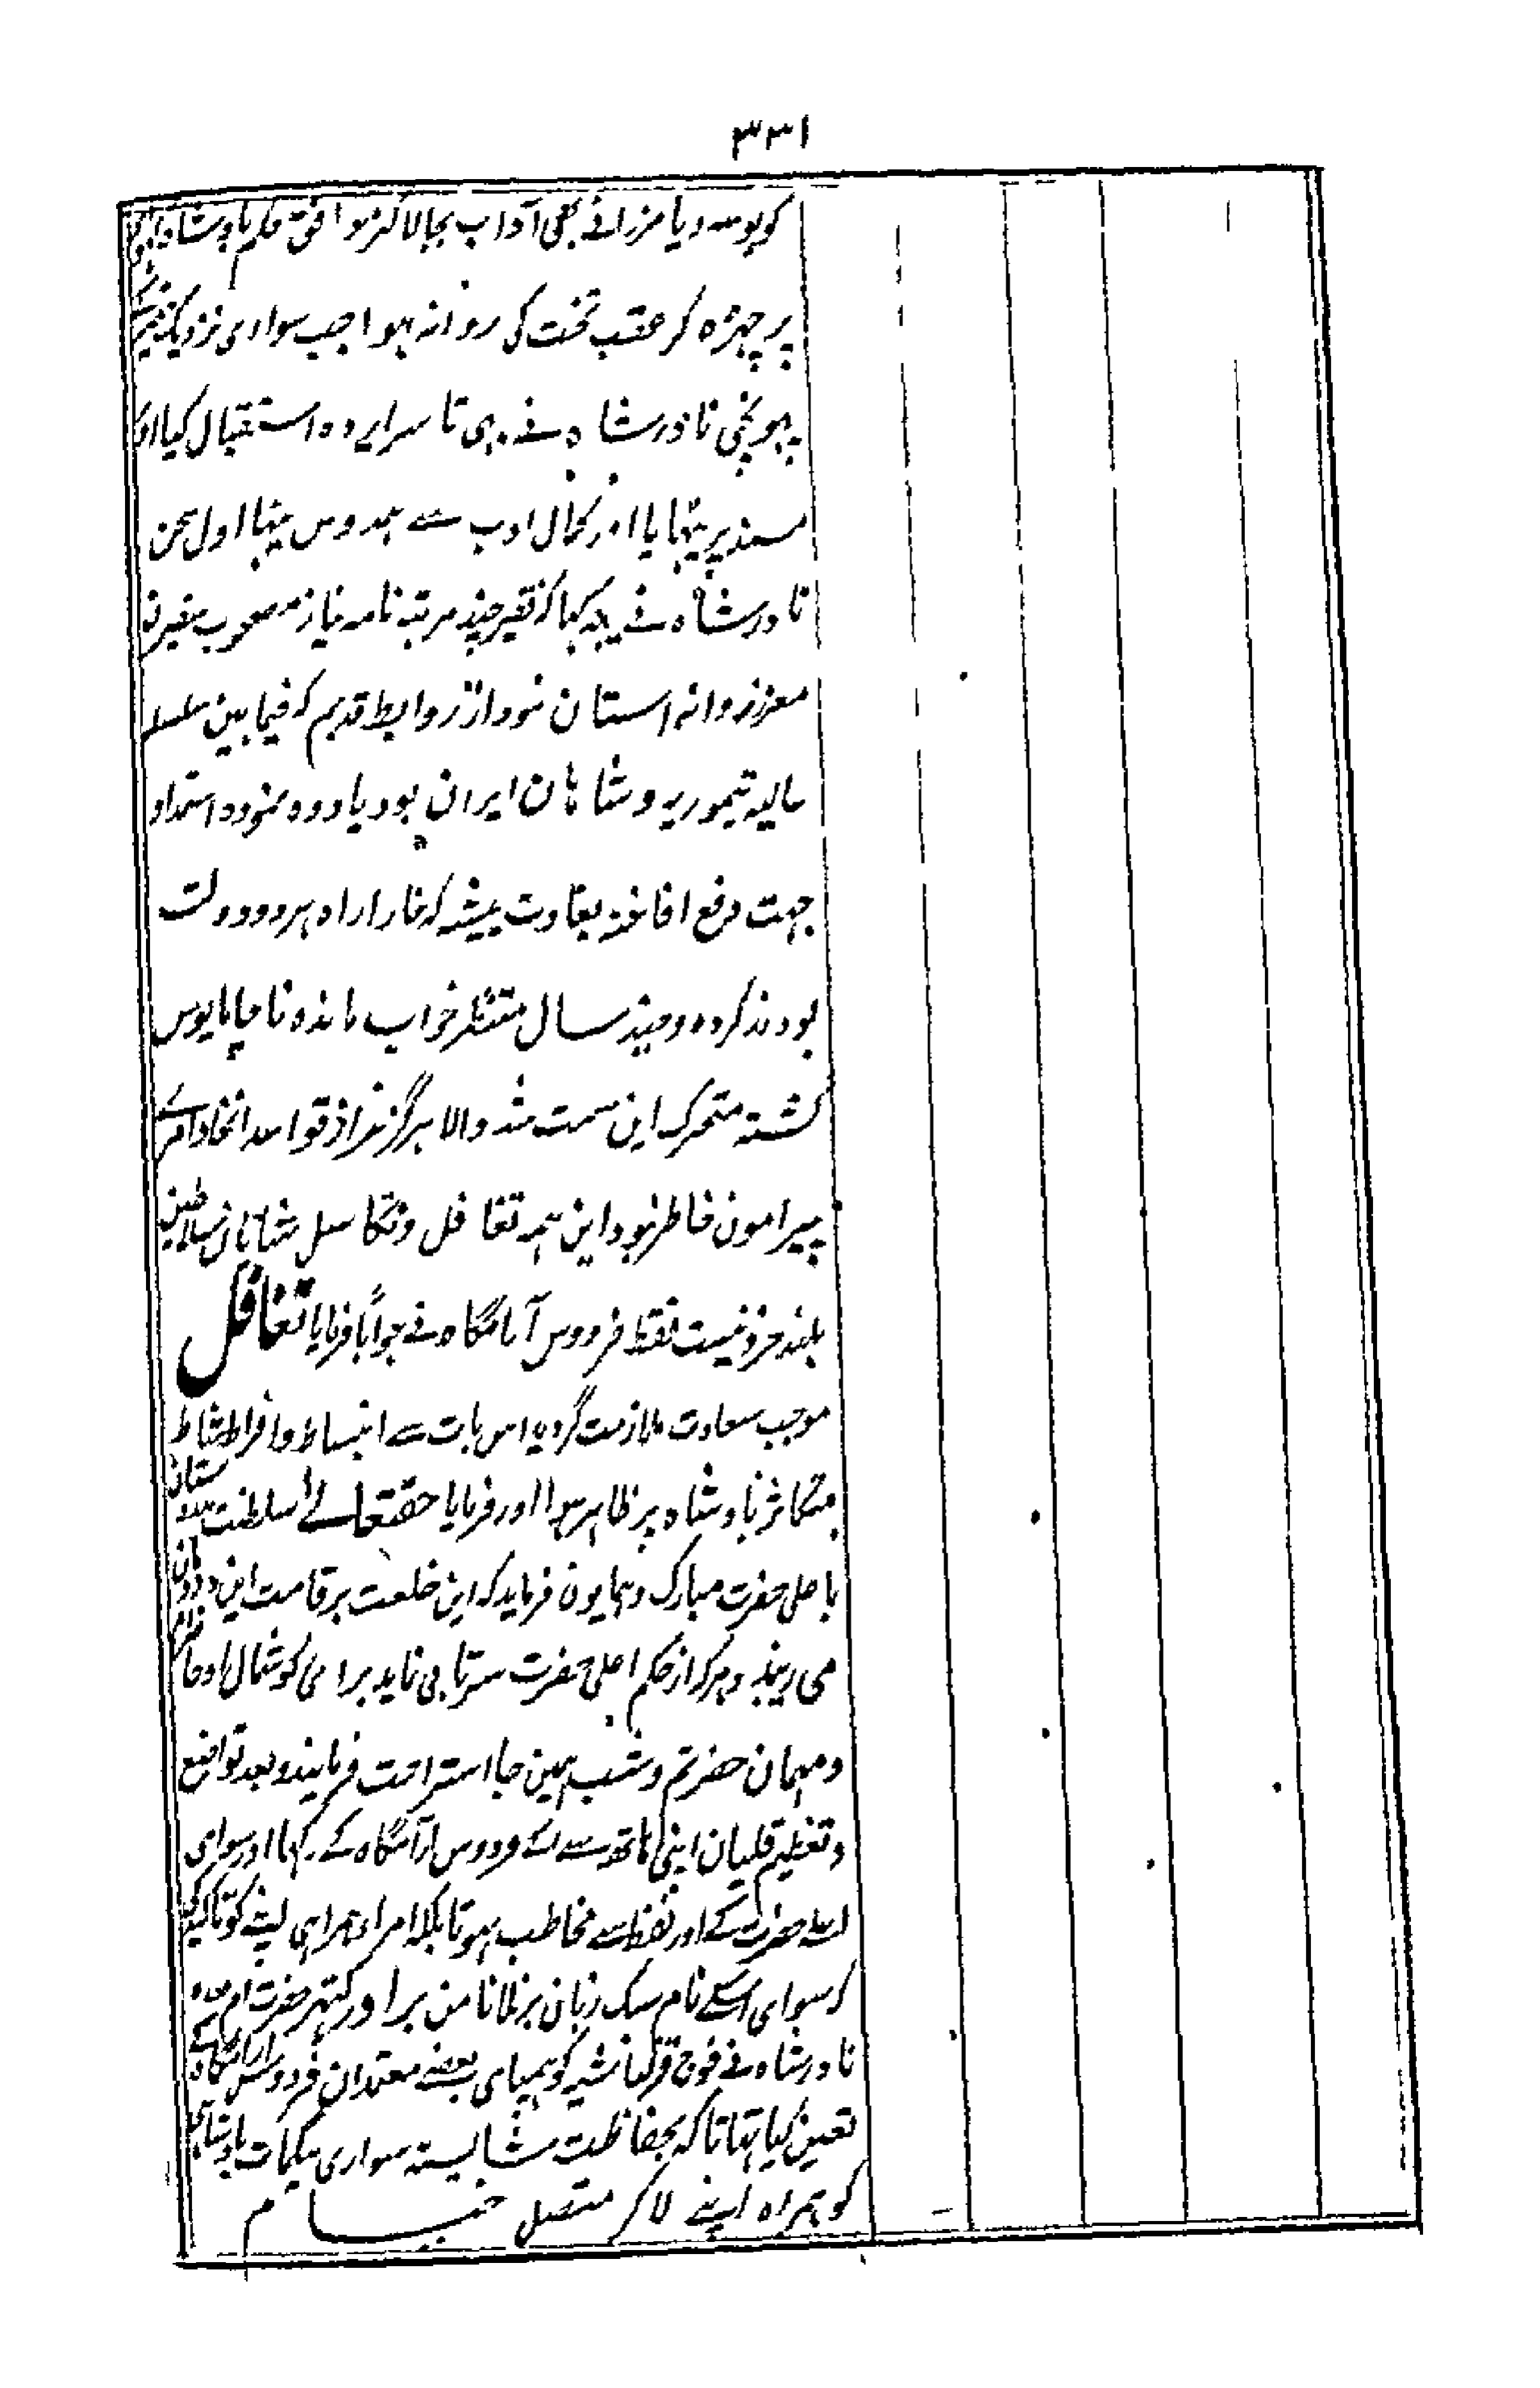 ۳۳۱
کو بوسہ دیا مرزا نے بھی آداب بجا لا کر موافق حکم بادشاہ
پر چڑہ کر عقب تخت کی روانہ ہوا جب سواری نزدیک خیمہ
پہونچی نادر شاہ نے بہی تا سراپردہ استقبال کیا اور
مسند پر بیٹھایا اور کمال ادب سے ہمدوس بیٹھا اول سخن
نادر شاہ نے یہہ کہا کہ فقیر چند مرتبہ نامہ نیاز مصحوب سفیر
معزز روانہ استان نمود از روابط قدیم کہ فیمابین سلسلہ
عالیہ تیموریہ و شاہان ایران بود یاد دہ نمودہ استمداد
جہت دفع افاغنہ بغاوت پیشہ کہ خار راہ ہر دو دولت
بودند کردہ و چند سال منتظر جواب ماندہ ناچار مایوس
گشتہ متحرک این سمت شد والا ہرگز غیر از قواعد اتحاد امرے
پیرامون خاطر نبود این ہمہ تغافل و تکاسل شایان سلاطین
بلند خرد نیست فقط فردوس آرامگاہ نے جواباً فرمایا تغافل
موجب سعادت ملازمت گردید اس بات سے انبساط وافر نشاط
متکاثر بادشاہ پر ظاہر ہوا اور فرمایا حقتعالے سلطنت ہندوستان
باعلی حضرت مبارک و ہمایون فرماید کہ این خلعت بر قامت این دودمان
می زیبد و ہر کہ از حکم اعلی حضرت سرتابی نماید برای گوشمال او حاضرم
و مہمان حضرتم و شب ہمین جا استراحت فرمایند و بعد تواضع
و تعظیم قلیان اپنی ہاتھ سے آگے فردوس آرامگاہ کے رکہا اور سوای
اعلے حضرت کے اور لفظ سے مخاطب نہوتا بلکہ امراء ہمراہی اپنے کو تاکید کی
کہ سوای اسکے نام سبک زبان پر نلانا من برادر کہتر حضرت ام
نادر شاہ نے فوج قزلباشیہ کو بہمپای بعضے معتمدان فردوس آرامگاہ کے
تعین کیا تہا تاکہ بحفاظت شایستہ سواری بیگمات بادشاہی
کو ہمراہ اپنے لا کر متصل خیام